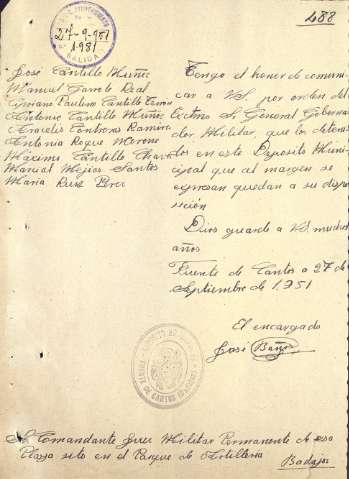 488
27-9-951
1981
SALIDA
José Cantillo Muñiz
Manuel Garrote Real
Cipriano Paulino Cantillo
Antonio Cantillo Muñiz
Aracelis Contreras Ramiro
Antonia Roque Moreno
Máximo Cantillo
Manuel Mejias Santos
Maria Ruiz Perez
Tengo el honor de comuni-
car a VS. por orden del
Excmo Sr General Goberna-
dor Militar, que los deteni-
dos en este Deposito Muni-
cipal que al margen se
expresan quedan a su dispo-
sición
Dios guarde a VS. muchos
años.
Fuente de Cantos a 27 de
Septiembre de 1951
El encargado
José Baños
Sr Comandante Juez Militar Permanente de esa
Plaza sito en el Parque de Artilleria
Badajoz